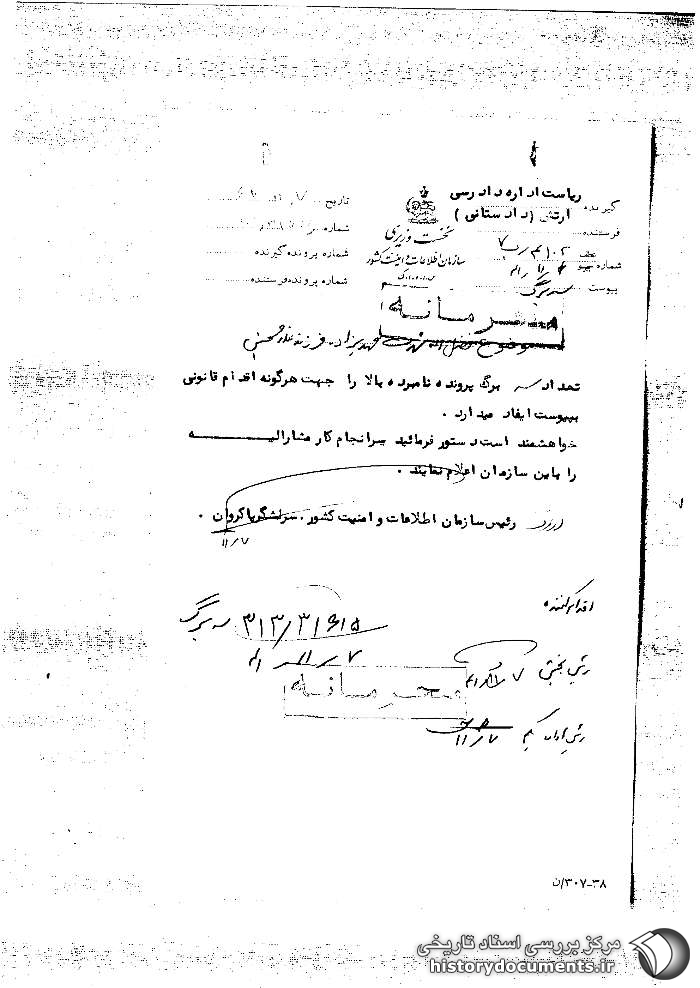 گیرنده ریاست اداره دادرسی
ارتش (دادستانی)
فرستنده
نخست وزیری
سازمان اطلاعات و امنیت کشور
تاریخ
شماره
شماره پرونده گیرنده
شماره پرونده فرستنده
شماره
پیوست سه برگ
محرمانه
موضوع فرزند غلامحسین
تعداد سه برگ پرونده نامبرده بالا را جهت هرگونه اقدام قانونی
بپیوست ایفاد میدارد .
خواهشمند است دستور فرمائید سرانجام کار مشارالیه
را باین سازمان اعلام نمایند .
رئیس سازمان اطلاعات و امنیت کشور . سرلشگر پاکروان .
۱۱/۷
اقدام کننده
۳۱۳/۳۱۶۱۵ سه برگ
رئیس بخش
محرمانه
رئیس اداره یکم
۳۰۷-۳۸/ن
مرکز بررسی اسناد تاریخی
historydocuments.ir